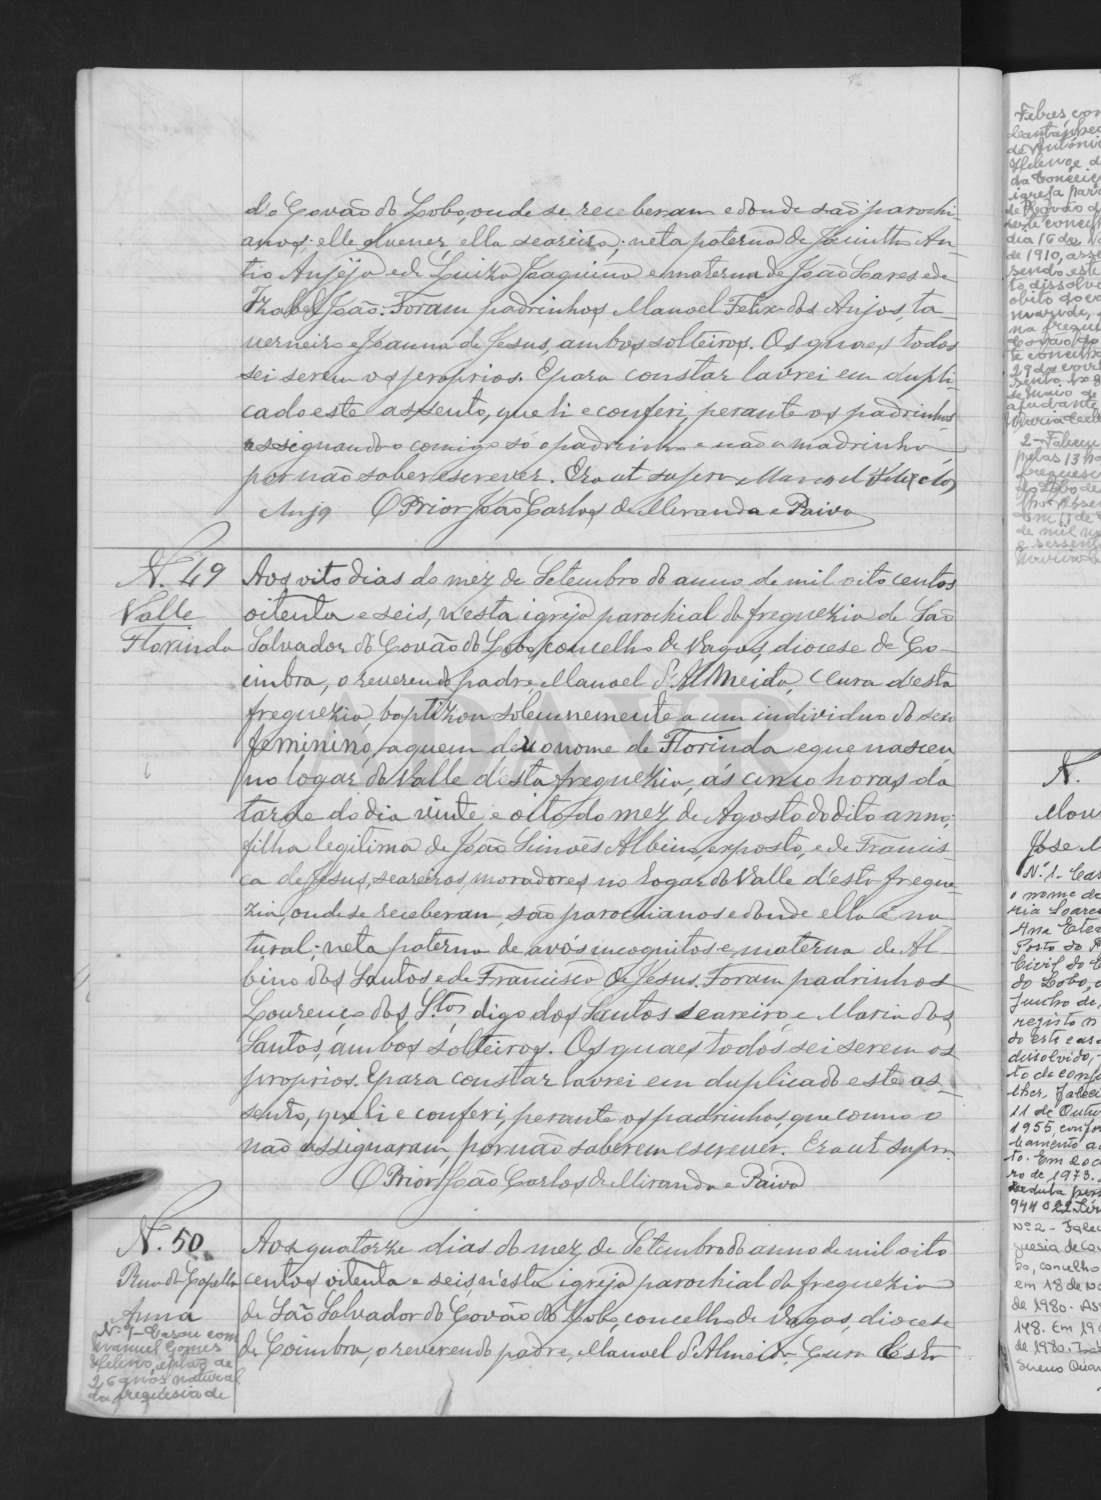 do Covão do Lobo, onde se receberam e donde são parochi-
anos; elle , ella seareira; neta paterna de Jacintho An-
tão e de Luiza Joaquina e materna de João Soares e de
Izabel João. Foram padrinhos Manoel Felix dos Anjos, ta-
verneiro e Joanna de Jesus, ambos solteiros. Os quaes todos
sei serem os proprios. E para constar lavrei em dupli-
cado este assento, que li e conferi, perante os padrinhos
assignando comigo só o padrinho e não a madrinha
por não saber escrever. Era ut supra. Manoel Felix dos
Anjos O Prior João Carlos de Miranda e Paiva
N. 49
Valle
Florinda
Aos oito dias do mez de Setembro do anno de mil oito centos
oitenta e seis, n'esta igreja parochial da freguezia de São
Salvador do Covão do Lobo, concelho de Vagos, diocese de Co-
imbra, o reverendo padre, Manoel d'Almeida, Cura d'esta
freguezia, baptizou solemnemente a um individuo do sexo
feminino, a quem deu o nome de Florinda e que nasceu
no logar do Valle d'esta freguezia, ás cinco horas da
tarde do dia vinte e oito do mez de Agosto do dito anno;
filha legitima de João Simões Albino, exposto, e de Francis-
ca de Jesus, seareiros, moradores no logar do Valle d'esta fregue-
zia, onde se receberam, são parochianos e donde ella é na-
tural; neta paterna de avós incognitos e materna de Al-
bino dos Santos e de Francisca de Jesus. Foram padrinhos
Lourenço dos S.tos, digo dos Santos seareiro, e Maria dos
Santos, ambos solteiros. Os quaes todos sei serem os
proprios. E para constar lavrei em duplicado este as-
sento, que li e conferi, perante os padrinhos, que comigo
não assignaram, por não saberem escrever. Era ut supra.
O Prior João Carlos de Miranda e Paiva
N. 50
Rua da Capella
Anna
Nº 1 - Casou com
Manuel Gomes
Heleno, de
26 anos natural
da freguesia de
Aos quatorze dias do mez de Setembro do anno de mil oito
centos oitenta e seis, n'esta igreja parochial da freguezia
de São Salvador do Covão do Lobo, concelho de Vagos, diocese
de Coimbra, o reverendo padre, Manoel d'Almeida, Cura d'esta
Febres, con
de Antonio
Helena e d
da Conceiç
igreja paro
de Covão d
dia 16 de
de 1910,
sendo este
to dissolvi
obito do
marido,
na fregue
Covão do
2 - Faleceu
pelas 13 ho
freguesia
do Lobo de
de mil no
e sessenta
N.
José M
Nº 1 - Cas
o nome de
ria Soares
Ana Ete
Posto do R
Civil do C
do Lobo,
Junho de
registo n
do este casa
dissolvido,
to de conju
lher, falec
11 de Outu
1955, confor
bamento
to. Em 20 d
ro de 1973.
944
Nº 2 - Fale
guesia de Co
bo, concelho
em 18 de
de 1980. Ass
148. Em 19
de 1980.